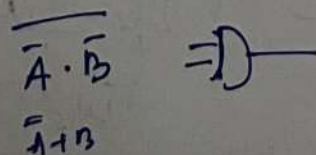 $\overline{\bar{A} \cdot \bar{B}}$
$\bar{\bar{A}} + B$